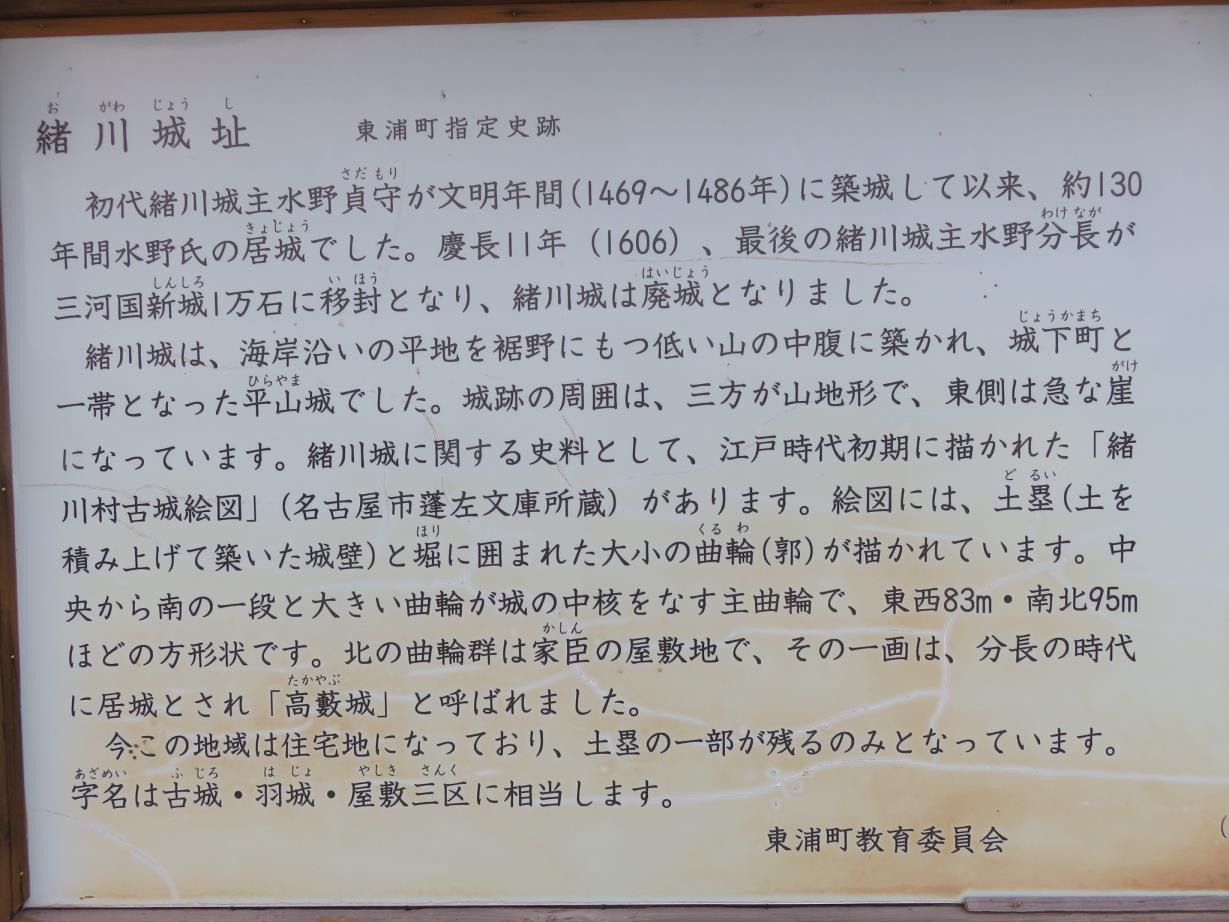 お がわ じょう し
緒川城址 東浦町指定史跡
さだ もり
初代緒川城主水野貞守が文明年間(1469～1486年)に築城して以来、約130
きょじょう わけ なが
年間水野氏の居城でした。慶長11年（1606）、最後の緒川城主水野分長が
しんしろ い ほう はいじょう
三河国新城1万石に移封となり、緒川城は廃城となりました。
じょうかまち
緒川城は、海岸沿いの平地を裾野にもつ低い山の中腹に築かれ、城下町と
ひらやま がけ
一帯となった平山城でした。城跡の周囲は、三方が山地形で、東側は急な崖
になっています。緒川城に関する史料として、江戸時代初期に描かれた「緒
ど るい
川村古城絵図」(名古屋市蓬左文庫所蔵）があります。絵図には、土塁(土を
ほり くる わ
積み上げて築いた城壁)と堀に囲まれた大小の曲輪(郭)が描かれています。中
央から南の一段と大きい曲輪が城の中核をなす主曲輪で、東西83m・南北95m
かしん
ほどの方形状です。北の曲輪群は家臣の屋敷地で、その一画は、分長の時代
たかやぶ
に居城とされ「高藪城」と呼ばれました。
今この地域は住宅地になっており、土塁の一部が残るのみとなっています。
あざめい ふ じろ は じょ やしき さんく
字名は古城・羽城・屋敷三区に相当します。
東浦町教育委員会
(